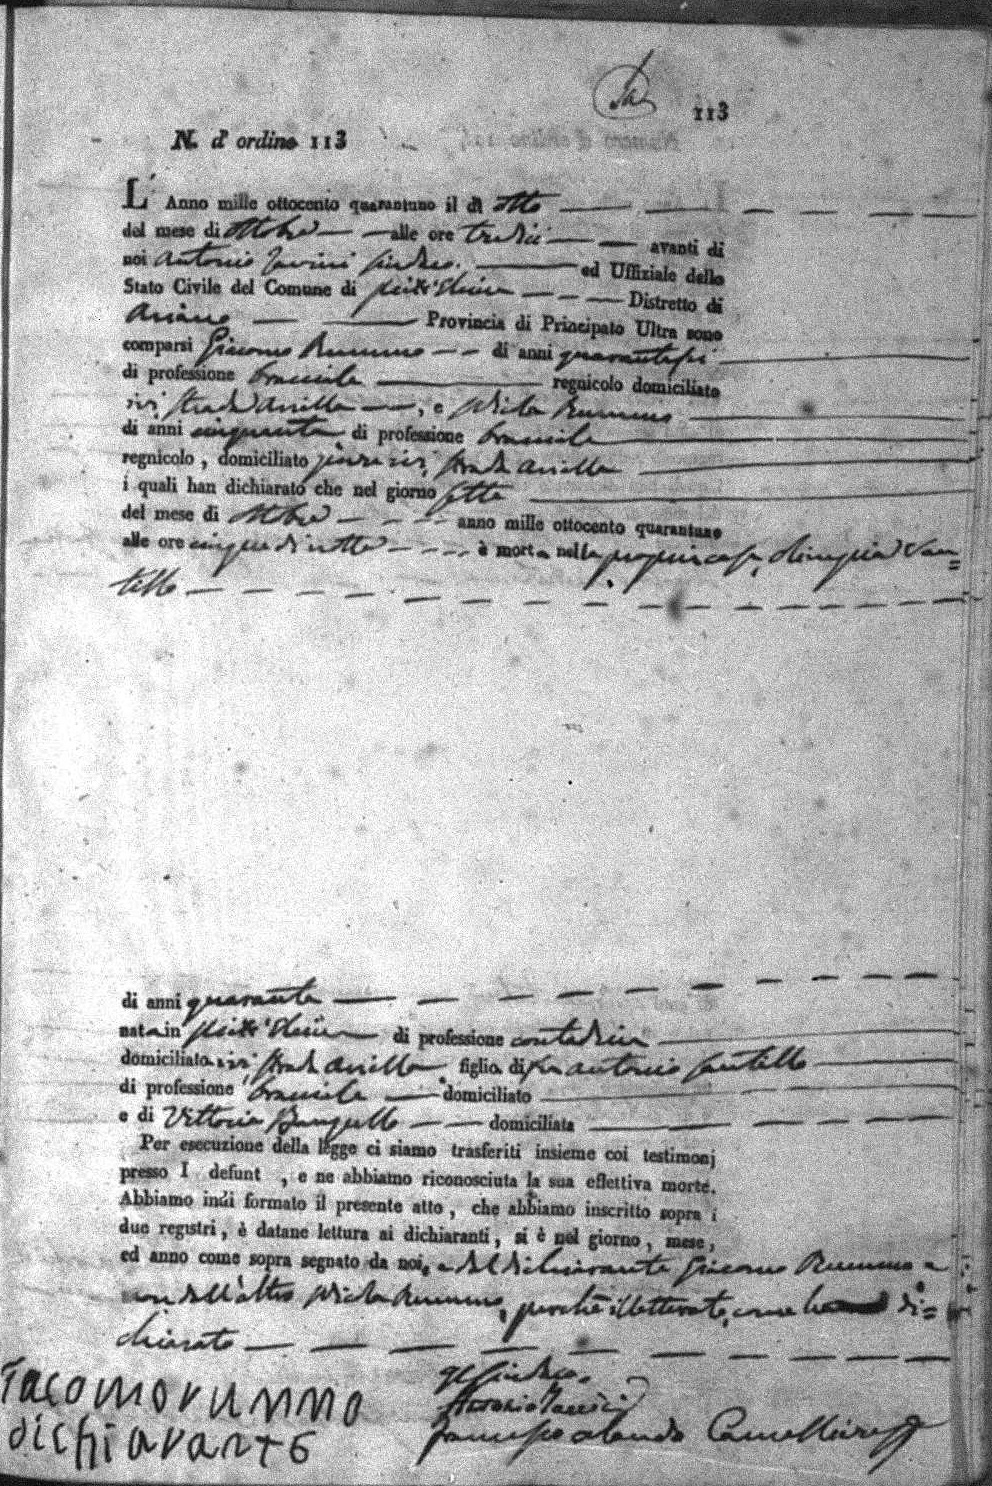 113
N. d' ordine 113
L' Anno mille ottocento quarantuno il dì otto
del mese di Ottobre alle ore tredici avanti di
noi Antonio Sindaco ed Uffiziale dello
Stato Civile del Comune di Distretto di
Ariano Provincia di Principato Ultra sono
comparsi Giacomo Rummo di anni quarantasei
di professione bracciale regnicolo domiciliato
ivi strada , e Nicola Rummo
di anni cinquanta di professione bracciale
regnicolo, domiciliato pure ivi strada
i quali han dichiarato che nel giorno sette
del mese di Ottobre anno mille ottocento quarantuno
alle ore cinque di notte è morta nella propria casa Olimpia San=
tillo
di anni quaranta
nata in di professione contadina
domiciliata ivi strada figlia di fu Antonio Santillo
di professione bracciale domiciliato
e di Vittoria domiciliata
Per esecuzione della legge ci siamo trasferiti insieme coi testimonj
presso I defunt , e ne abbiamo riconosciuta la sua effettiva morte.
Abbiamo indi formato il presente atto, che abbiamo inscritto sopra i
due registri, è datane lettura ai dichiaranti, si è nel giorno, mese,
ed anno come sopra segnato da noi, e dal dichiarante Giacomo Rummo e
non dall'altro Nicola Rummo, perchè illetterato, come ha di=
chiarato
Iacomo rummo
dichiarante
Il Sindaco
Antonio
Francesco Cancelliere